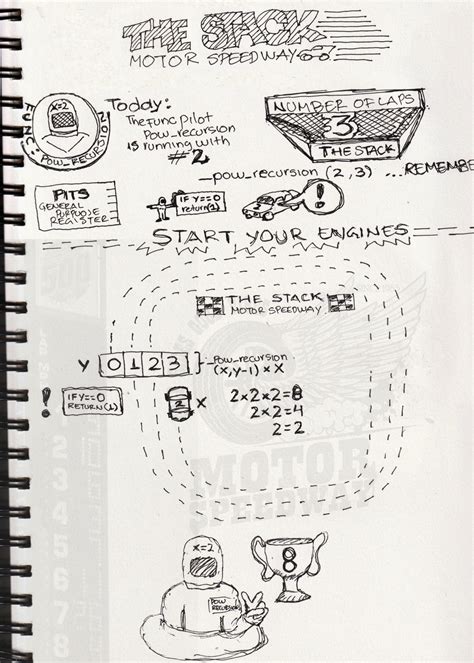 THE STACK
MOTOR SPEEDWAY
X=2
FUNC: POW_RECURSION
Today:
The Func pilot
Pow_recursion
is running with
#2
NUMBER OF LAPS
3
THE STACK
_pow_recursion (2,3) ...REMEMBE
PITS
GENERAL
PURPOSE
REGISTER
IF Y==0
return(1)
!
START YOUR ENGINES
THE STACK
MOTOR SPEEDWAY
Y 0 1 2 3 _pow_recursion
(x,y-1) * X
! IF Y==0
RETURN(1)
2 X 2x2x2=8
2x2=4
2=2
MOTOR
SPEEDWAY
500
1
2
3
4
5
6
7
8
X=2
POW
RECURSION
8